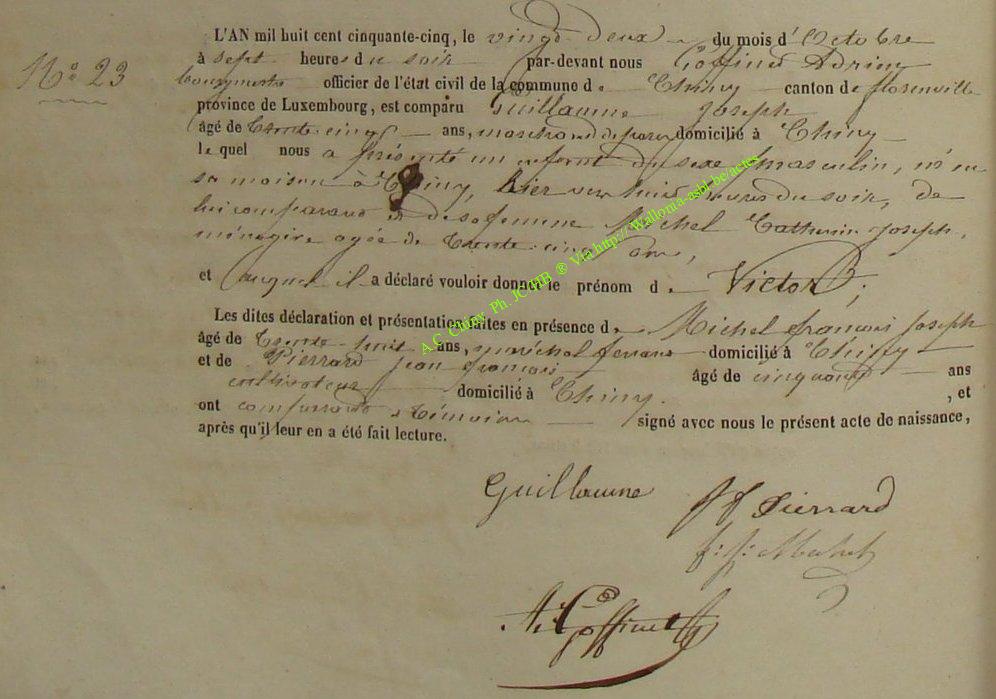 N° 23
L'AN mil huit cent cinquante-cinq, le vingt deux du mois d'Octobre
à sept heures du soir par-devant nous Goffinet Adrien
bourgmestre officier de l'état civil de la commune de Chiny canton de florenville
province de Luxembourg, est comparu Guillaume Joseph
âgé de trente-cinq ans, marchand de domicilié à Chiny
le quel nous a présenté un enfant du sexe masculin, né en
sa maison à Chiny, hier vers huit heures du soir, de
lui comparant et de sa femme Michel Catherine Joseph,
ménagère agée de trente-cinq ans,
et auquel il a déclaré vouloir donner le prénom de Victor;
Les dites déclaration et présentation faites en présence de Michel françois Joseph
âgé de trente-huit ans, maréchal ferrant domicilié à Chiny
et de Pierrard jean françois âgé de cinquante ans
cultivateur domicilié à Chiny. , et
ont comparant & témoins signé avec nous le présent acte de naissance,
après qu'il leur en a été fait lecture.
Guillaume
jf Pierrard
f: j: Michel
A. Goffinet
A.C. Chiny Ph. JCHIB ® Via http://Wallonia-asbl.be/actes